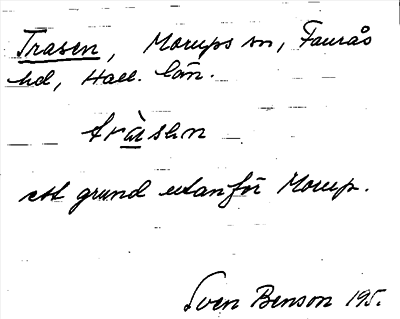 Trasen, Morups sn, Faurås
hd, Hall. län.
tràsen
ett grund utanför Morup.
Sven Benson 195.